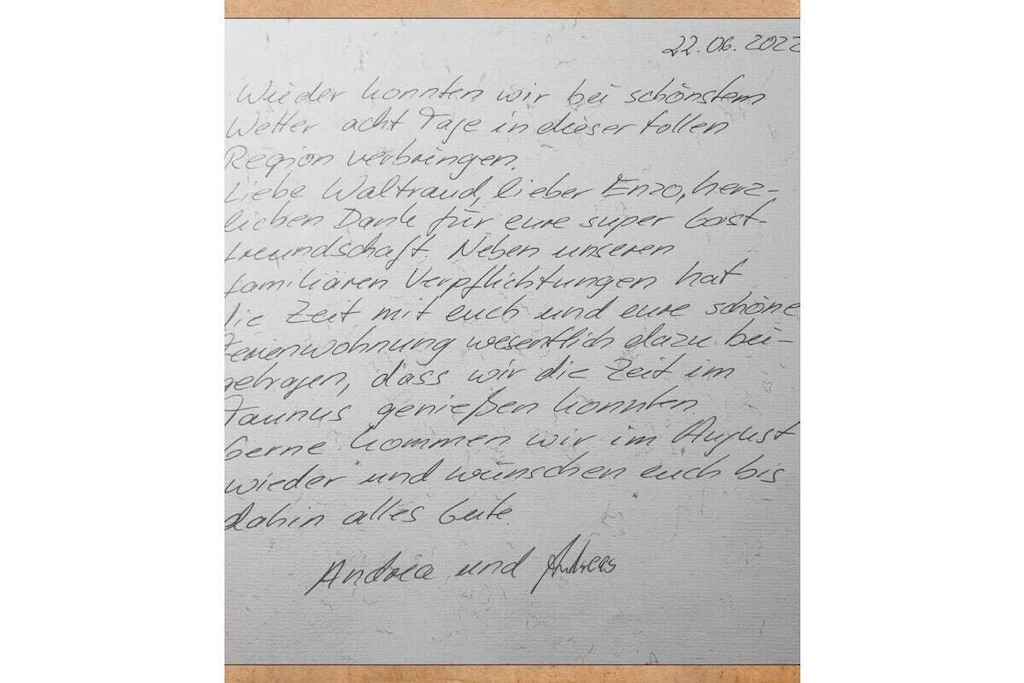 22.06.2022
Wieder konnten wir bei schönstem
Wetter acht Tage in dieser tollen
Region verbringen.
Liebe Waltraud, lieber Enzo, herz-
lichen Dank für eure super Gast-
freundschaft. Neben unseren
familiären Verpflichtungen hat
die Zeit mit euch und eure schöne
Ferienwohnung wesentlich dazu bei-
getragen, dass wir die Zeit im
Taunus genießen konnten.
Gerne kommen wir im August
wieder und wünschen euch bis
dahin alles Gute.
Andrea und Andreas